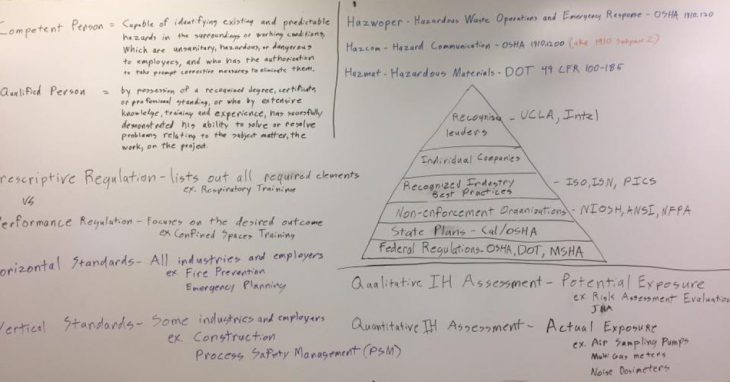 Competent Person = Capable of identifying existing and predictable
hazards in the surroundings or working conditions,
Which are unsanitary, hazardous, or dangerous
to employees, and who has the authorization
to take prompt corrective measures to eliminate them.
Qualified Person = by possession of a recognized degree, certificate,
or professional standing, or who by extensive
knowledge, training and experience, has successfully
demonstrated his ability to solve or resolve
problems relating to the subject matter, the
work, or the project.
Prescriptive Regulation - lists out all required elements
ex. Respiratory Training
vs
Performance Regulation - Focuses on the desired outcome
ex Confined Spaces Training
Horizontal Standards - All industries and employers
ex. Fire Prevention
Emergency Planning
Vertical Standards - Some industries and employers
ex. Construction
Process Safety Management (PSM)
Hazwoper - Hazardous Waste Operations and Emergency Response - OSHA 1910.120
Hazcom - Hazard Communication - OSHA 1910.1200 (aka 1910 Subpart Z)
Hazmat - Hazardous Materials - DOT 49 CFR 100-185
Recognize - UCLA, Intel
leaders
Individual Companies
Recognized Industry
Best Practices - ISO, ISN, PICS
Non-enforcement Organizations - NIOSH, ANSI, NFPA
State Plans - Cal/OSHA
Federal Regulations - OSHA, DOT, MSHA
Qualitative IH Assessment - Potential Exposure
ex Risk Assessment Evaluation
JHA
Quantitative IH Assessment - Actual Exposure
ex. Air Sampling Pumps
Multi Gas meters
Noise Dosimeters